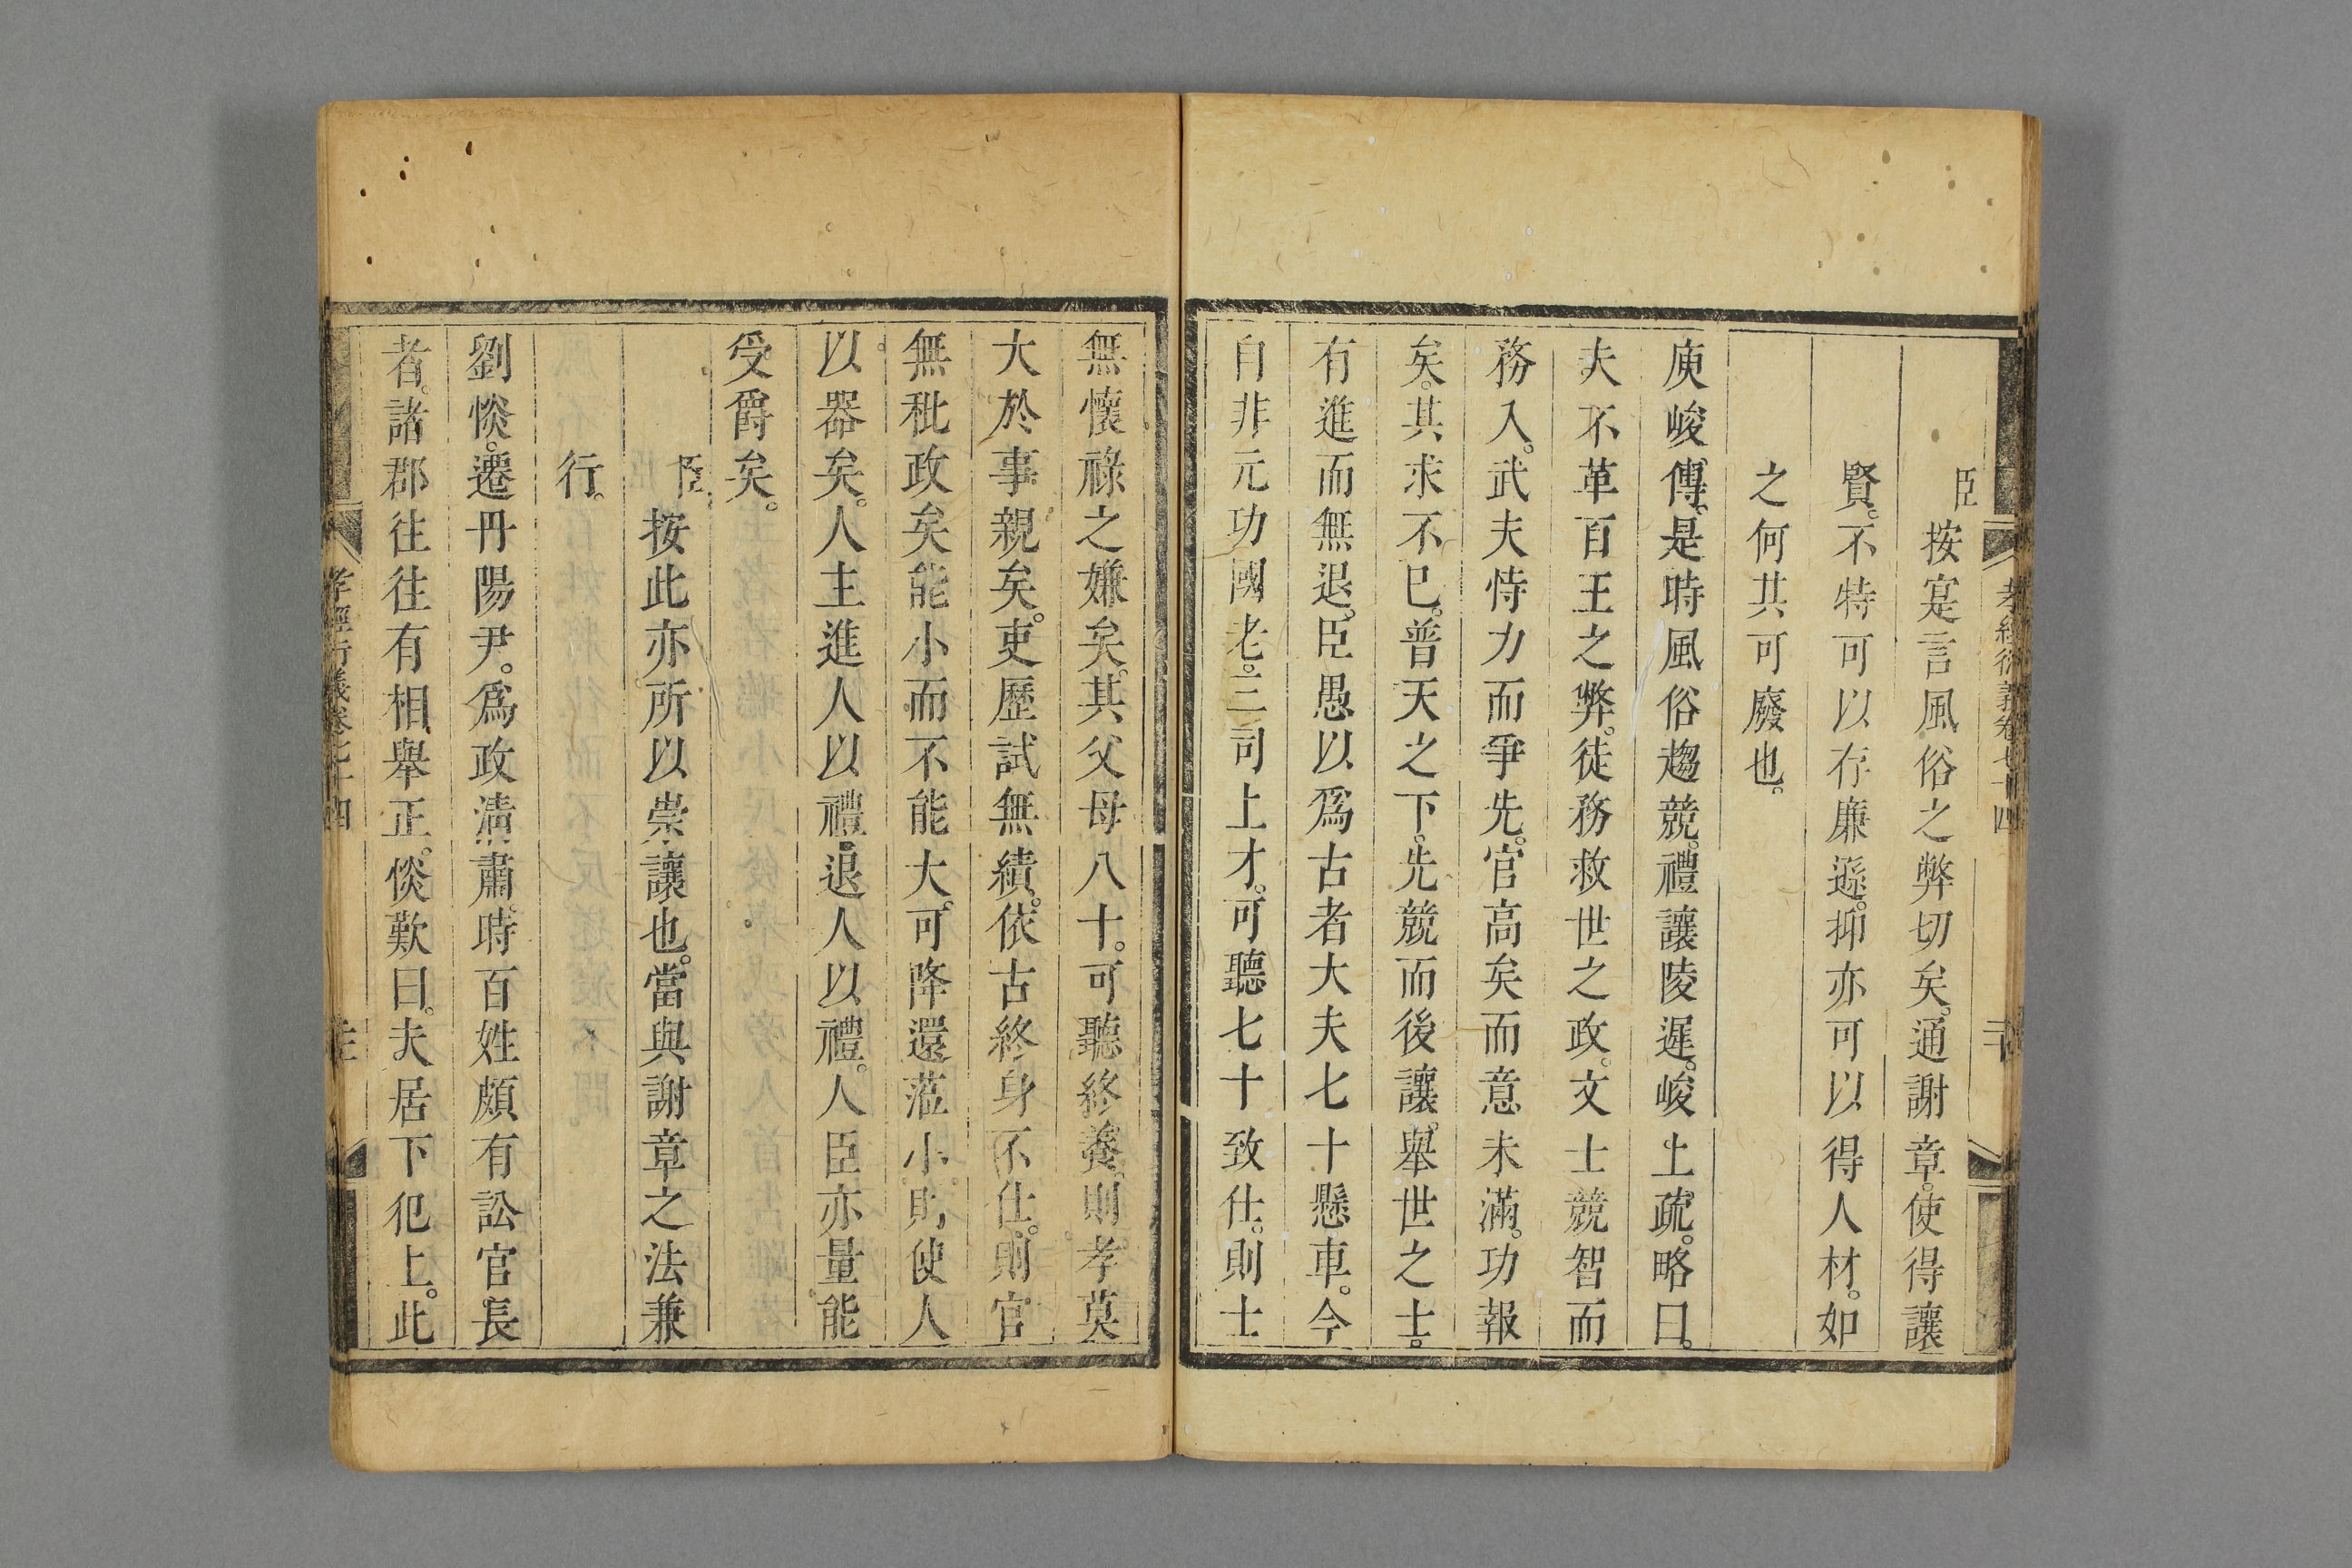 孝經衍義卷七十四
臣按寔言風俗之弊切矣。通謝章。使得讓
賢。不特可以存廉遜。抑亦可以得人材。如
之何其可廢也。
庾峻傳。是時風俗趨競。禮讓陵遲。峻上疏。略曰。
夫不革百王之弊。徒務救世之政。文士競智而
務入。武夫恃力而爭先。官高矣而意未滿。功報
矣。其求不已。普天之下。先競而後讓。舉世之士。
有進而無退。臣愚以爲古者大夫七十懸車。今
自非元功國老。三司上才。可聽七十致仕。則士
無懷祿之嫌矣。其父母八十。可聽終養。則孝莫
大於事親矣。吏歷試無績。依古終身不仕。則官
無秕政矣。能小而不能大。可降還蒞小。則使人
以器矣。人主進人以禮。退人以禮。人臣亦量能
受爵矣。
臣按此亦所以崇讓也。當與謝章之法兼
行。
劉惔。遷丹陽尹。爲政清肅。時百姓頗有訟官長
者。諸郡往往有相舉正。惔歎曰。夫居下犯上。此
孝經衍義卷七十四